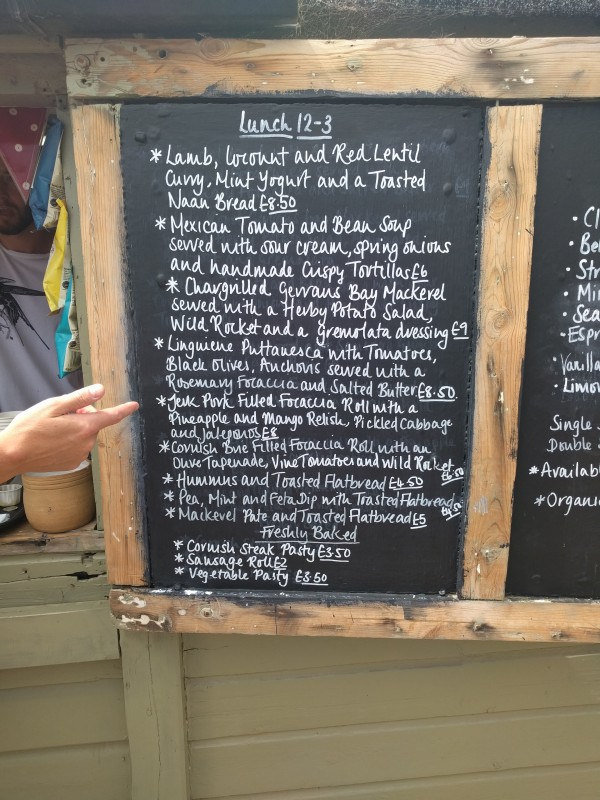 Lunch 12-3
* Lamb, Coconut and Red Lentil
Curry, Mint Yogurt and a Toasted
Naan Bread £8.50
* Mexican Tomato and Bean Soup
served with sour cream, spring onions
and handmade Crispy Tortillas £6
* Chargrilled Gerrans Bay Mackerel
served with a Herby Potato Salad,
Wild Rocket and a gremolata dressing £9
* Linguiene Puttanesca with Tomatoes,
Black Olives, Anchovis served with a
Rosemary Focaccia and Salted Butter £8.50
* Jerk Pork Filled Focaccia Roll with a
Pineapple and Mango Relish, Pickled Cabbage
and Jaleponos £8
* Cornish Brie Filled Focaccia Roll with an
Olive Tapenade, Vine Tomatoes and Wild Rocket
* Hummus and Toasted Flatbread £4.50
* Pea, Mint and Feta Dip with Toasted Flatbread
* Mackerel Pate and Toasted Flatbread £5
Freshly Baked
* Cornish Steak Pasty £3.50
* Sausage Roll £2
* Vegetable Pasty £3.50
Single
Double